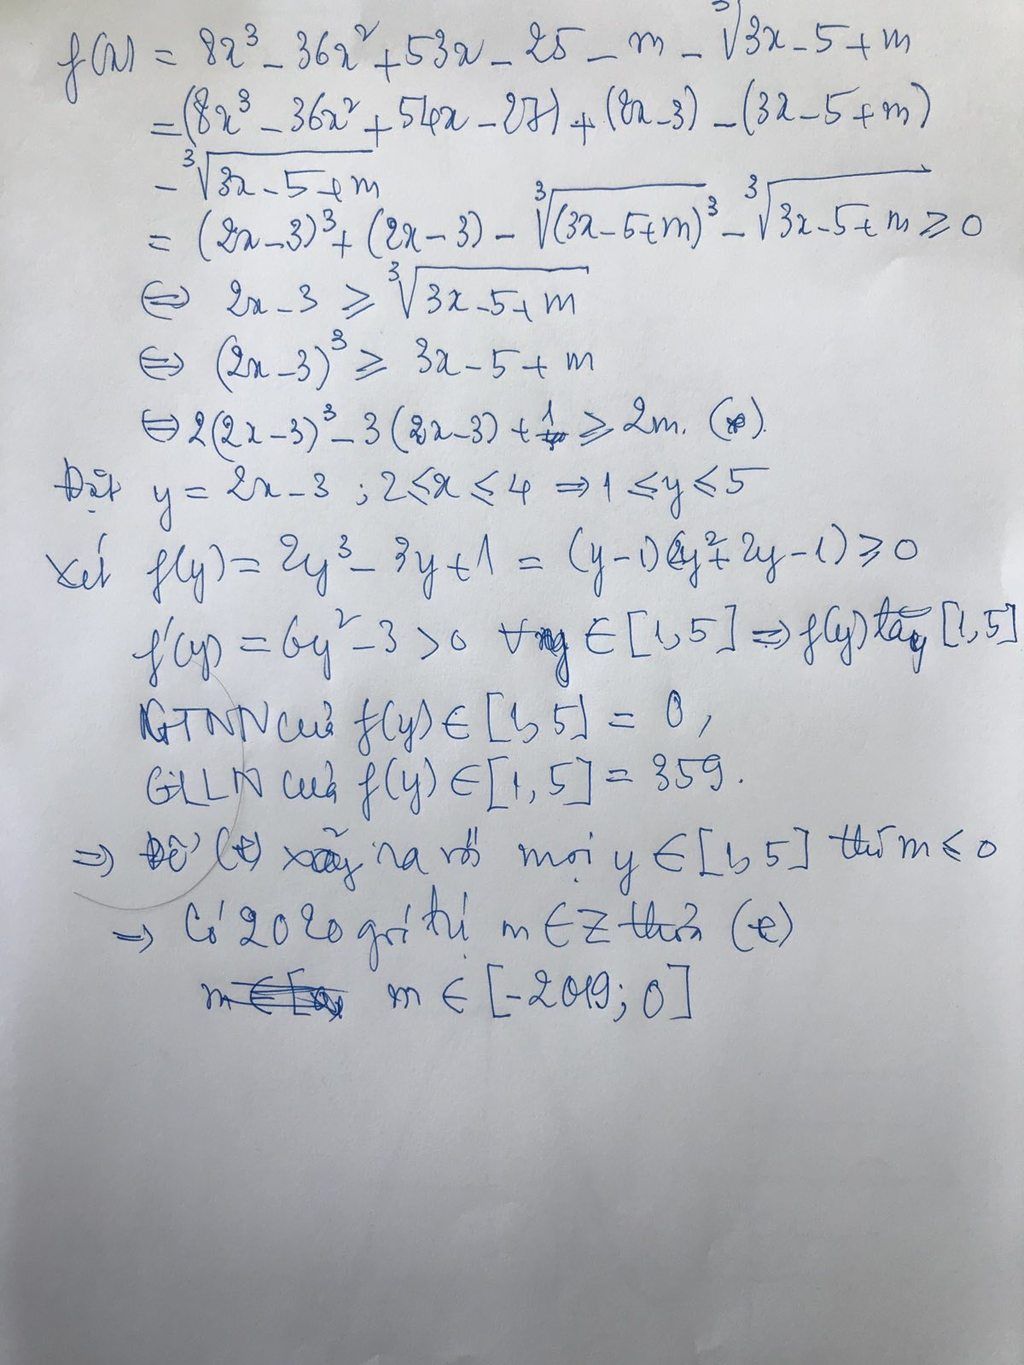 f(x) = 8x³ - 36x² + 53x - 25 - m - ∛(3x - 5 + m)
= (8x³ - 36x² + 54x - 27) + (2x - 3) - (3x - 5 + m)
- ∛(3x - 5 + m)
= (2x - 3)³ + (2x - 3) - ∛(3x - 5 + m)³ - ∛(3x - 5 + m) ≥ 0
⇔ 2x - 3 ≥ ∛(3x - 5 + m)
⇔ (2x - 3)³ ≥ 3x - 5 + m
⇔ 2(2x - 3)³ - 3(2x - 3) + 1 ≥ 2m. (*).
Đặt y = 2x - 3 ; 2 ≤ x ≤ 4 ⇒ 1 ≤ y ≤ 5
Xét f(y) = 2y³ - 3y + 1 = (y - 1)(2y² + 2y - 1) ≥ 0
f'(y) = 6y² - 3 > 0 ∀y ∈ [1, 5] ⇒ f(y) tăng [1, 5]
GTNN của f(y) ∈ [1, 5] = 0,
GTLN của f(y) ∈ [1, 5] = 359.
⇒ Để (*) xảy ra với mọi y ∈ [1, 5] thì m ≤ 0
⇒ Có 2020 giá trị m ∈ Z thỏa (*)
m ∈ [-2019; 0]